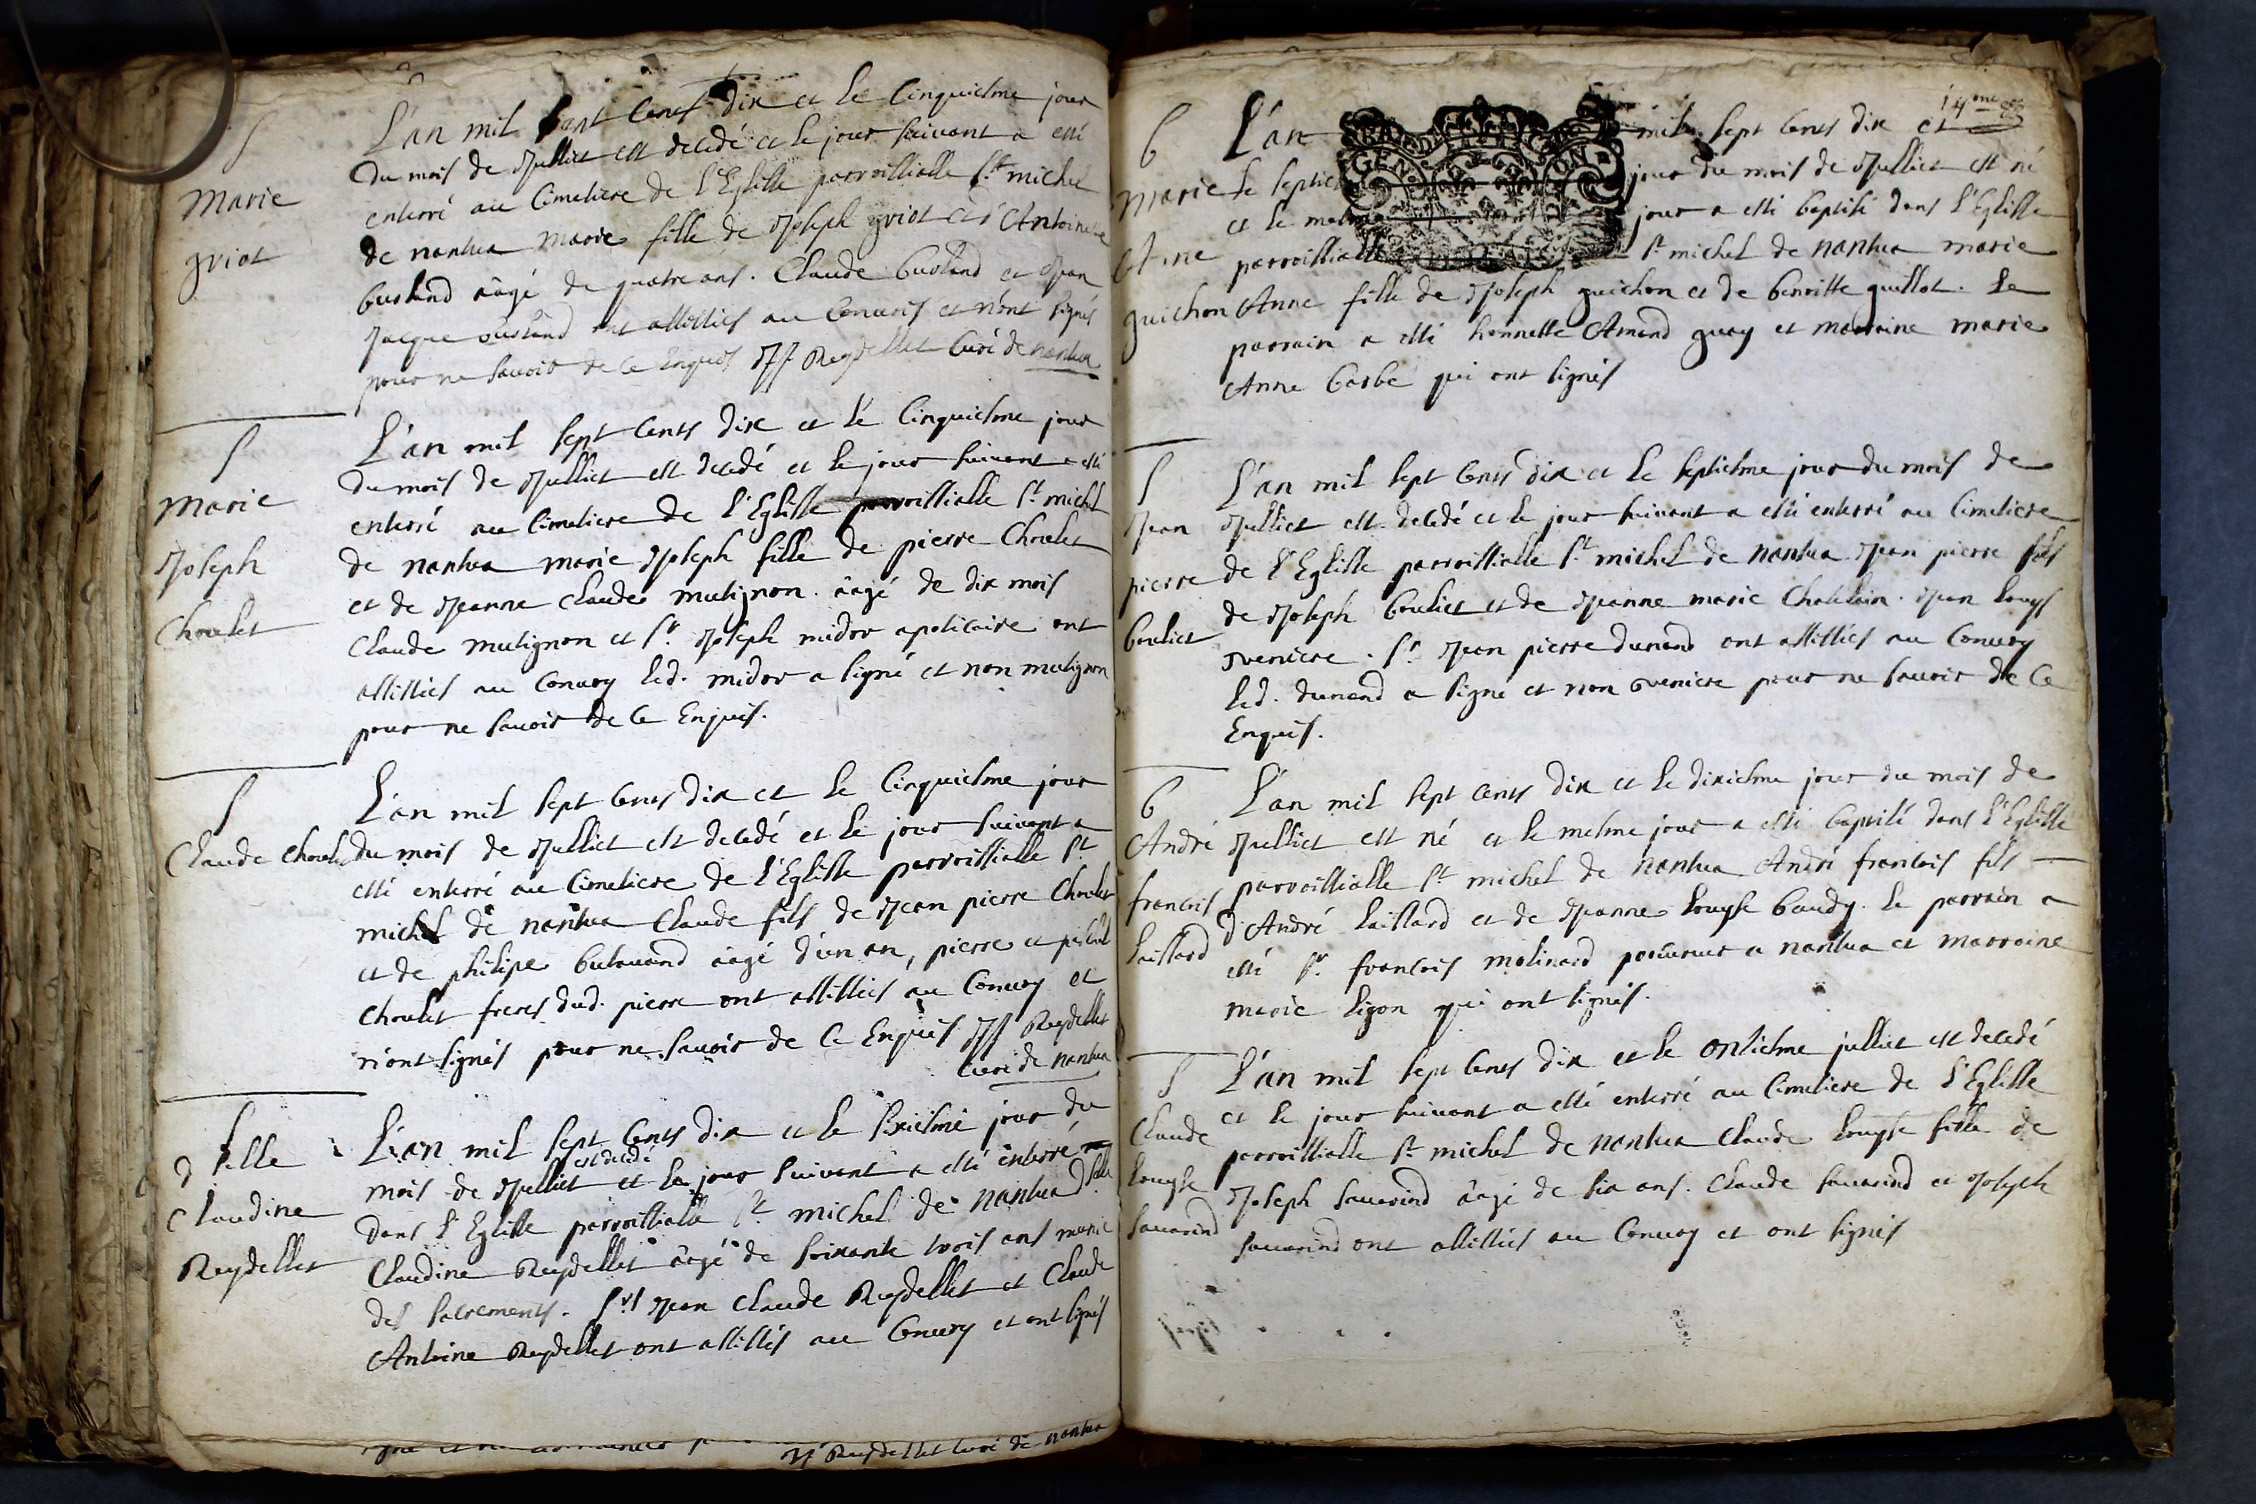 S
Marie
griot
L'an mil sept cents dix et le cinquiesme jour
du mois de Julliet est decedé et le jour suivant a esté
enterré au Cimetiere de l'Eglisse parroissialle St michel
de nantua marie fille de Joseph griot et d'Antoinette
âagé de quatre ans. Claude et Jean
Jacque ont assistés au Convois et n'ont signés
pour ne savoir de ce Enquis JJ Reydellet Curé de nantua
S
Marie
Joseph
Choulet
L'an mil sept cents dix et le Cinquiesme jour
du mois de Julliet est decedé et le jour suivant a esté
enterré au Cimetiere de l'Eglisse parroissialle St michel
de nantua marie Joseph fille de pierre Choulet
et de Jeanne Claude mutignon. âagé de dix mois
Claude mutignon et Sr. Joseph midor apoticaire ont
assistés au Convoy led. midor a signé et non mutignon
pour ne savoir de ce Enquis.
S
Claude Choulet
L'an mil sept cents dix et le Cinquiesme jour
du mois de Julliet est decedé et le jour suivant a
esté enterré au Cimetiere de l'Eglisse parroissialle St
michel de nantua Claude fils de Jean pierre Choulet
et de philipe âagé d'un an, pierre et
Choulet freres dud. pierre ont assistés au Convoy et
n'ont signés pour ne savoir de ce Enquis JJ Reydellet
Curé de nantua
S
dlle
Claudine
Reydellet
L'an mil sept cents dix et le sixiesme jour du
est decedé
mois de Julliet et le jour suivant a esté enterré
dans l'Eglisse parroissialle St michel de nantua dlle
Claudine Reydellet âagé de soixante trois ans munie
des sacrements. Srs Jean Claude Reydellet et Claude
Antoine Reydellet ont assistés au Convoy et ont signés
JJ Reydellet Curé de nantua
14me
B
Marie
Anne
guichon
L'an mil sept cents dix et
le septie jour du mois de Julliet est né
et le mesme jour a esté baptisé dans l'Eglisse
parroissialle St michel de nantua marie
Anne fille de Joseph guichon et de benoitte guillot. Le
parrain a esté honneste Amand guay et marraine marie
Anne barbe qui ont signés
S
Jean
pierre
bouliet
L'an mil sept cents dix et le septiesme jour du mois de
Julliet est decedé et le jour suivant a esté enterré au Cimetiere
de l'Eglisse parroissialle St michel de nantua Jean pierre fils
de Joseph bouliet et de Jeanne marie Chatelain. Jean Louys
. Sr Jean pierre dunand ont assistés au Convoy
led. dunand a signé et non pour ne savoir de ce
Enquis.
B
André
francois
saillard
L'an mil sept cents dix et le dixiesme jour du mois de
Julliet est né et le mesme jour a esté baptisé dans l'Eglisse
parroissialle St michel de nantua André francois fils
d'André saillard et de Jeanne Louyse baudy. Le parrain a
esté Sr. francois molinard procureur a nantua et marraine
marie ligon qui ont signés.
S
Claude
Louyse
savarind
L'an mil sept cents dix et le onsiesme julliet est decedé
et le jour suivant a esté enterré au Cimetiere de l'Eglisse
parroissialle St michel de nantua Claude Louyse fille de
Joseph savarind âagé de six ans. Claude savarind et Joseph
savarind ont assistés au Convoy et ont signés